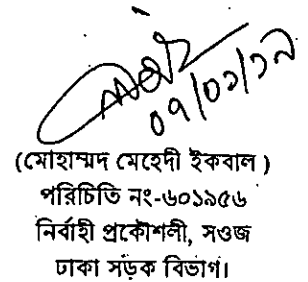 ০৭/০১/১৯
(মোহাম্মদ মেহেদী ইকবাল )
পরিচিতি নং-৬০১৯৫৬
নির্বাহী প্রকৌশলী, সওজ
ঢাকা সড়ক বিভাগ।